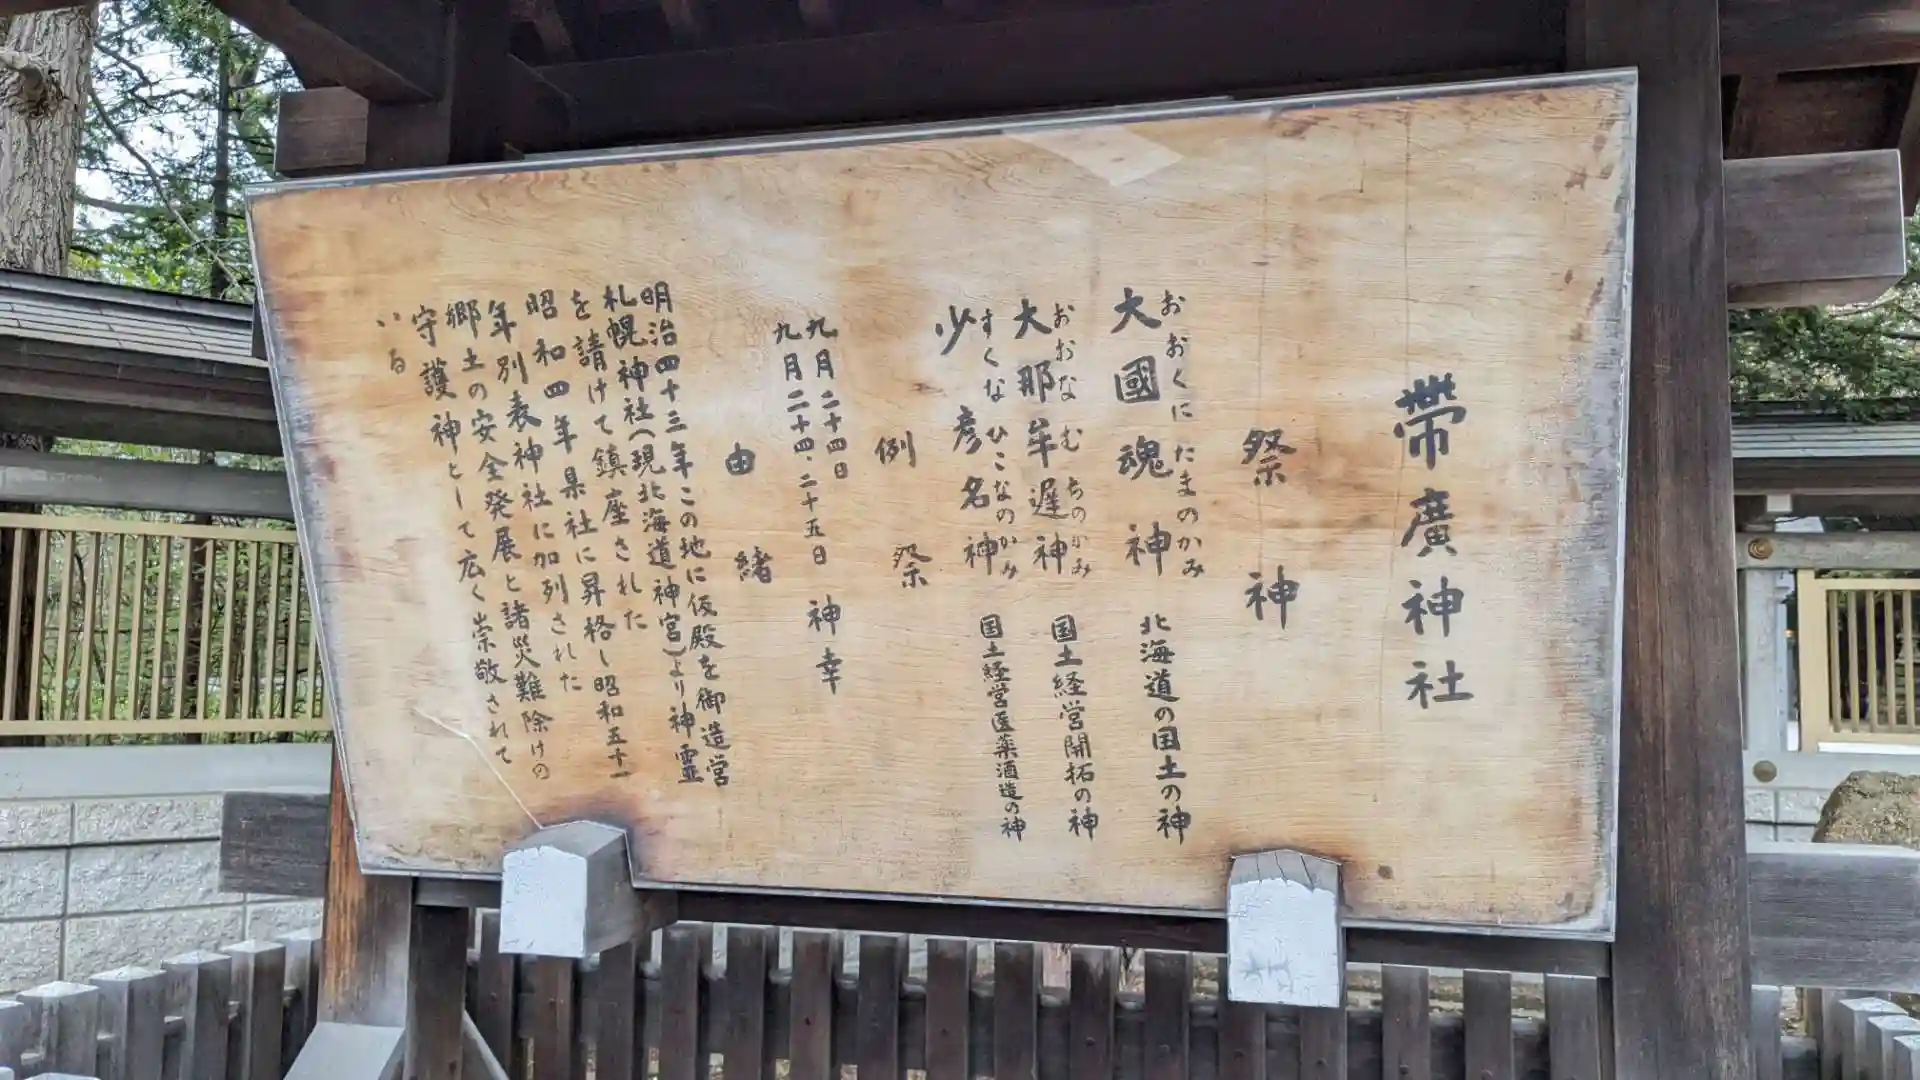 帶廣神社
祭神
おおくにたまのかみ
大國魂神 北海道の国土の神
おおなむちのかみ
大那牟遅神 国土経営開拓の神
すくなひこなのかみ
少彦名神 国土経営医薬酒造の神
例祭
九月二十四日
九月二十四、二十五日 神幸
由緒
明治四十三年この地に仮殿を御造営
札幌神社(現北海道神宮)より神霊
を請けて鎮座された
昭和四年県社に昇格し昭和五十一
年別表神社に加列された
郷土の安全発展と諸災難除けの
守護神として広く崇敬されて
いる